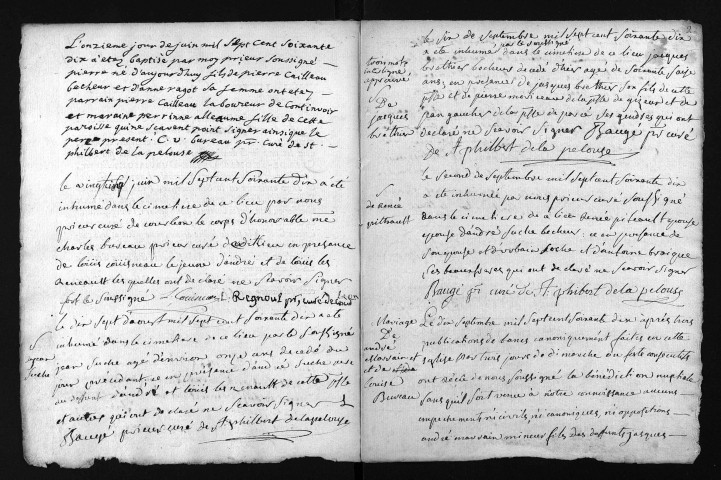 L'onzieme jour de juin mil sept cent soixante
dix a etez baptisé par moy prieur soussigné
pierre né d'aujourd'huy fils de pierre Cailleau
becheur et d'anne ragot sa femme ont etez
parrain pierre Cailleau laboureur de Continvoir
et maraine perrinne alleaume fille de cette
paroisse qui ne scavent point signer ainsi que le
pere present. bureau pr. curé de st
philbert de la pelouse
le vingt juin mil sept cent soixante dix a été
inhumé dans le cimetiere de ce lieu par nous
prieur curé de courleon le corps d'honorable me
charles bureau prieur curé du dit lieu en presence
de louis cousineau le jeune d'andré et de louis les
Reneault les quelles ont declaré ne scavoir signer
fors le soussigné Cousineau L. Regnoul pr. curé de
le dix sept d'aoust mil sept cent soixante dix a été
inhumé dans le cimetiere de ce lieu par le soussigné
jean suché agé d'environ onze ans decedé du
jour precedant, ce en presence d'andré suché pere
du deffunt d'andré et louis les renault de cette psse
et autres qui ont declaré ne scavoir signer
Baugé prieur curé de St philbert de la pelouse
S. jean
suché
le six de septembre mil sept cent soixante dix
par le soussigné
a été inhumé dans le cimetiere de ce lieu jacques
becheur decedé d'hier agé de soixante
ans, en presence de jacques son fils de cette
psse et de pierre de la psse de gizeux et de
jean gautier de la psse de parcé les quels ont
declaré ne scavoir signer Baugé pr. curé
De St philbert de la pelouse
trois mots
interligne
approuvé
S.
De
jacques
le second de septembre mil sept cent soixante dix
a été inhumée par nous prieur curé soussigné
dans le cimetiere de ce lieu Renée piltault
epouse d'andré suché becheur; ce en presence de
son epoux et d'urbain suché et d'antoine
ses beaux freres qui ont declaré ne scavoir signer
Baugé pr. curé de St philbert de la pelouse
S.
de Renée
piltrault
Le dix septembre mil sept cent soixante dix apres trois
publications de bancs canoniquement faites en cette
eglise par trois jours de dimanche ou feste consecutifs
ont recu de nous soussigné la benediction nuptiale
sans qu'il soit venu à notre connaissance aucuns
empechements ni civils, ni canoniques, ni oppositions
andré marsain mineur fils des deffunts jacques
Mariage
D'
andré
Marsain et
et de
Louise
Bureau